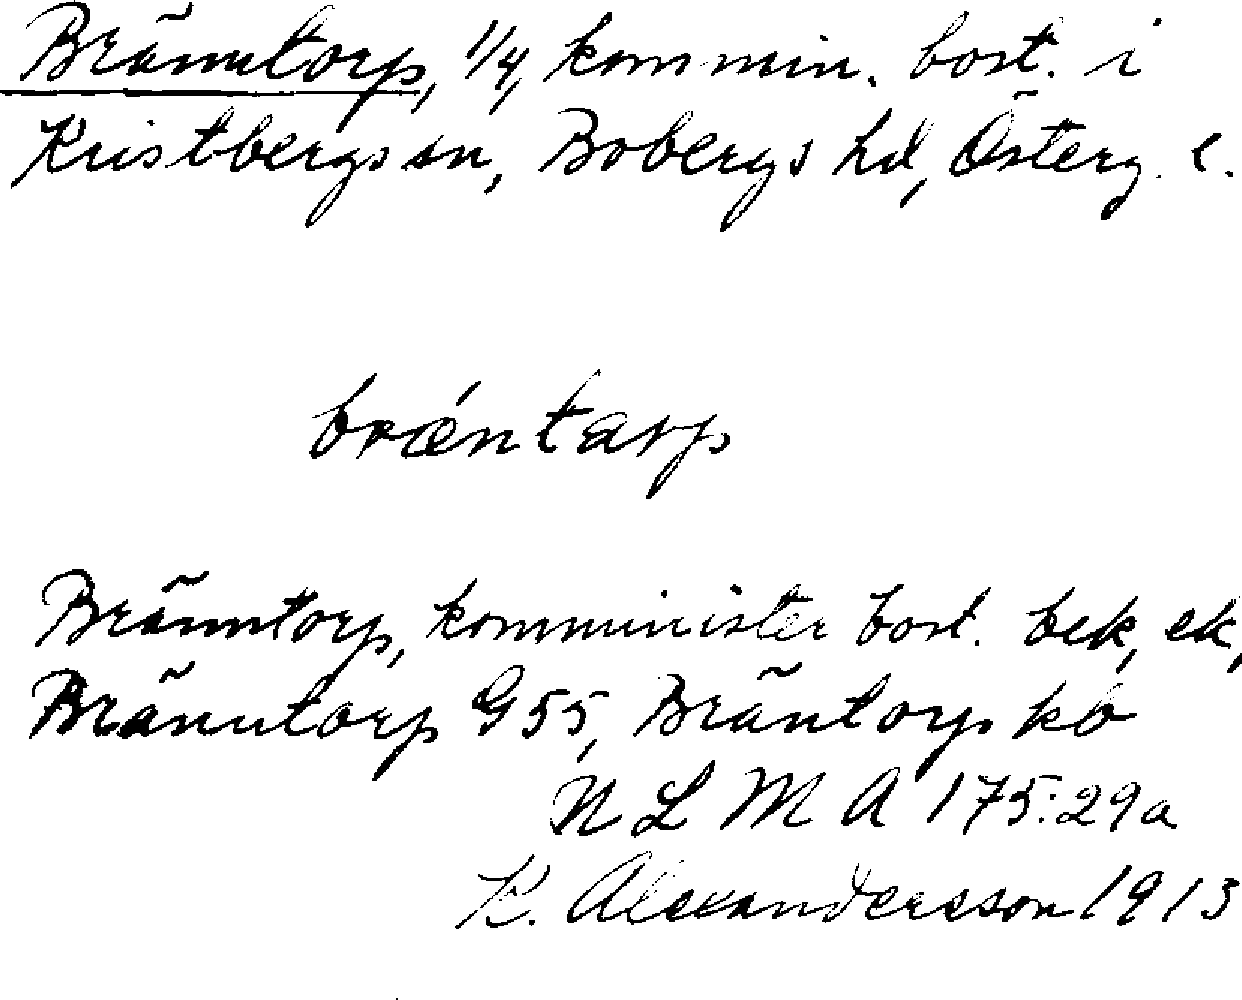 Bränntorp, 1/4, kommin. bost. i
Kristbergs sn, Bobergs hd, Österg. l.
brǽntarp
Bränntorp, komminister bost. bek, ek,
Bränntorp G55, Bräntorp ko
N L M A 175:29a
K. Alexandersson 1913